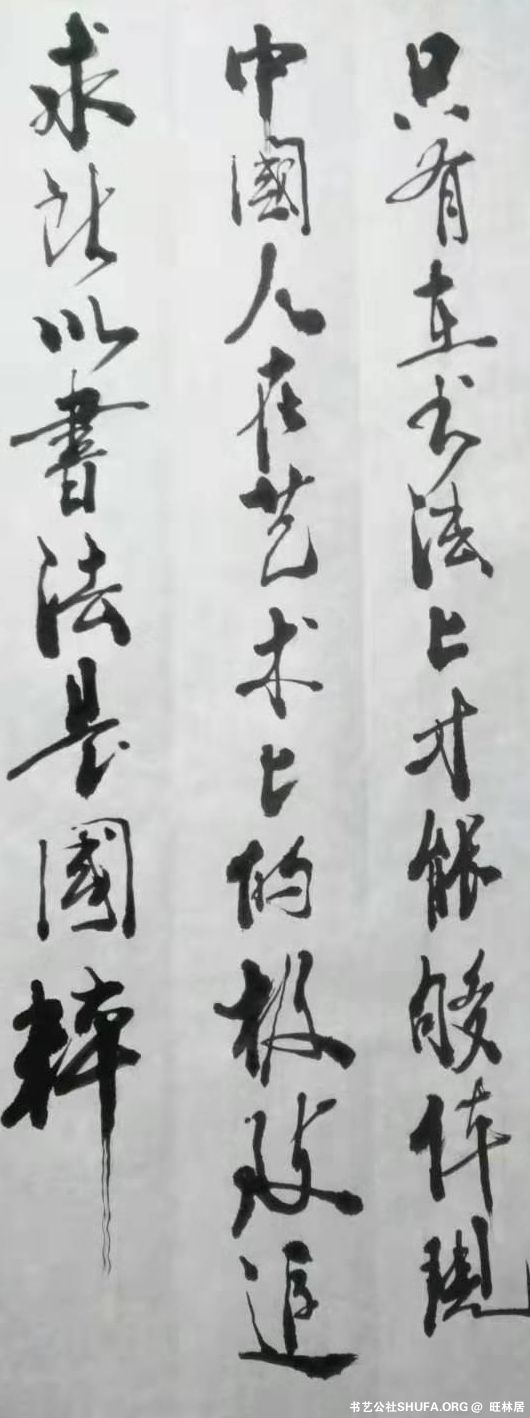 只有在书法上才能够体现
中國人在艺术上的极致追
求所以書法是國粹
书艺公社SHUFA.ORG @ 旺林居